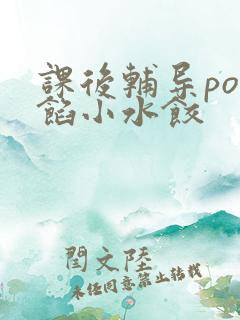 課後輔导po
餡小水餃
閆文陸
未经同意禁止转载